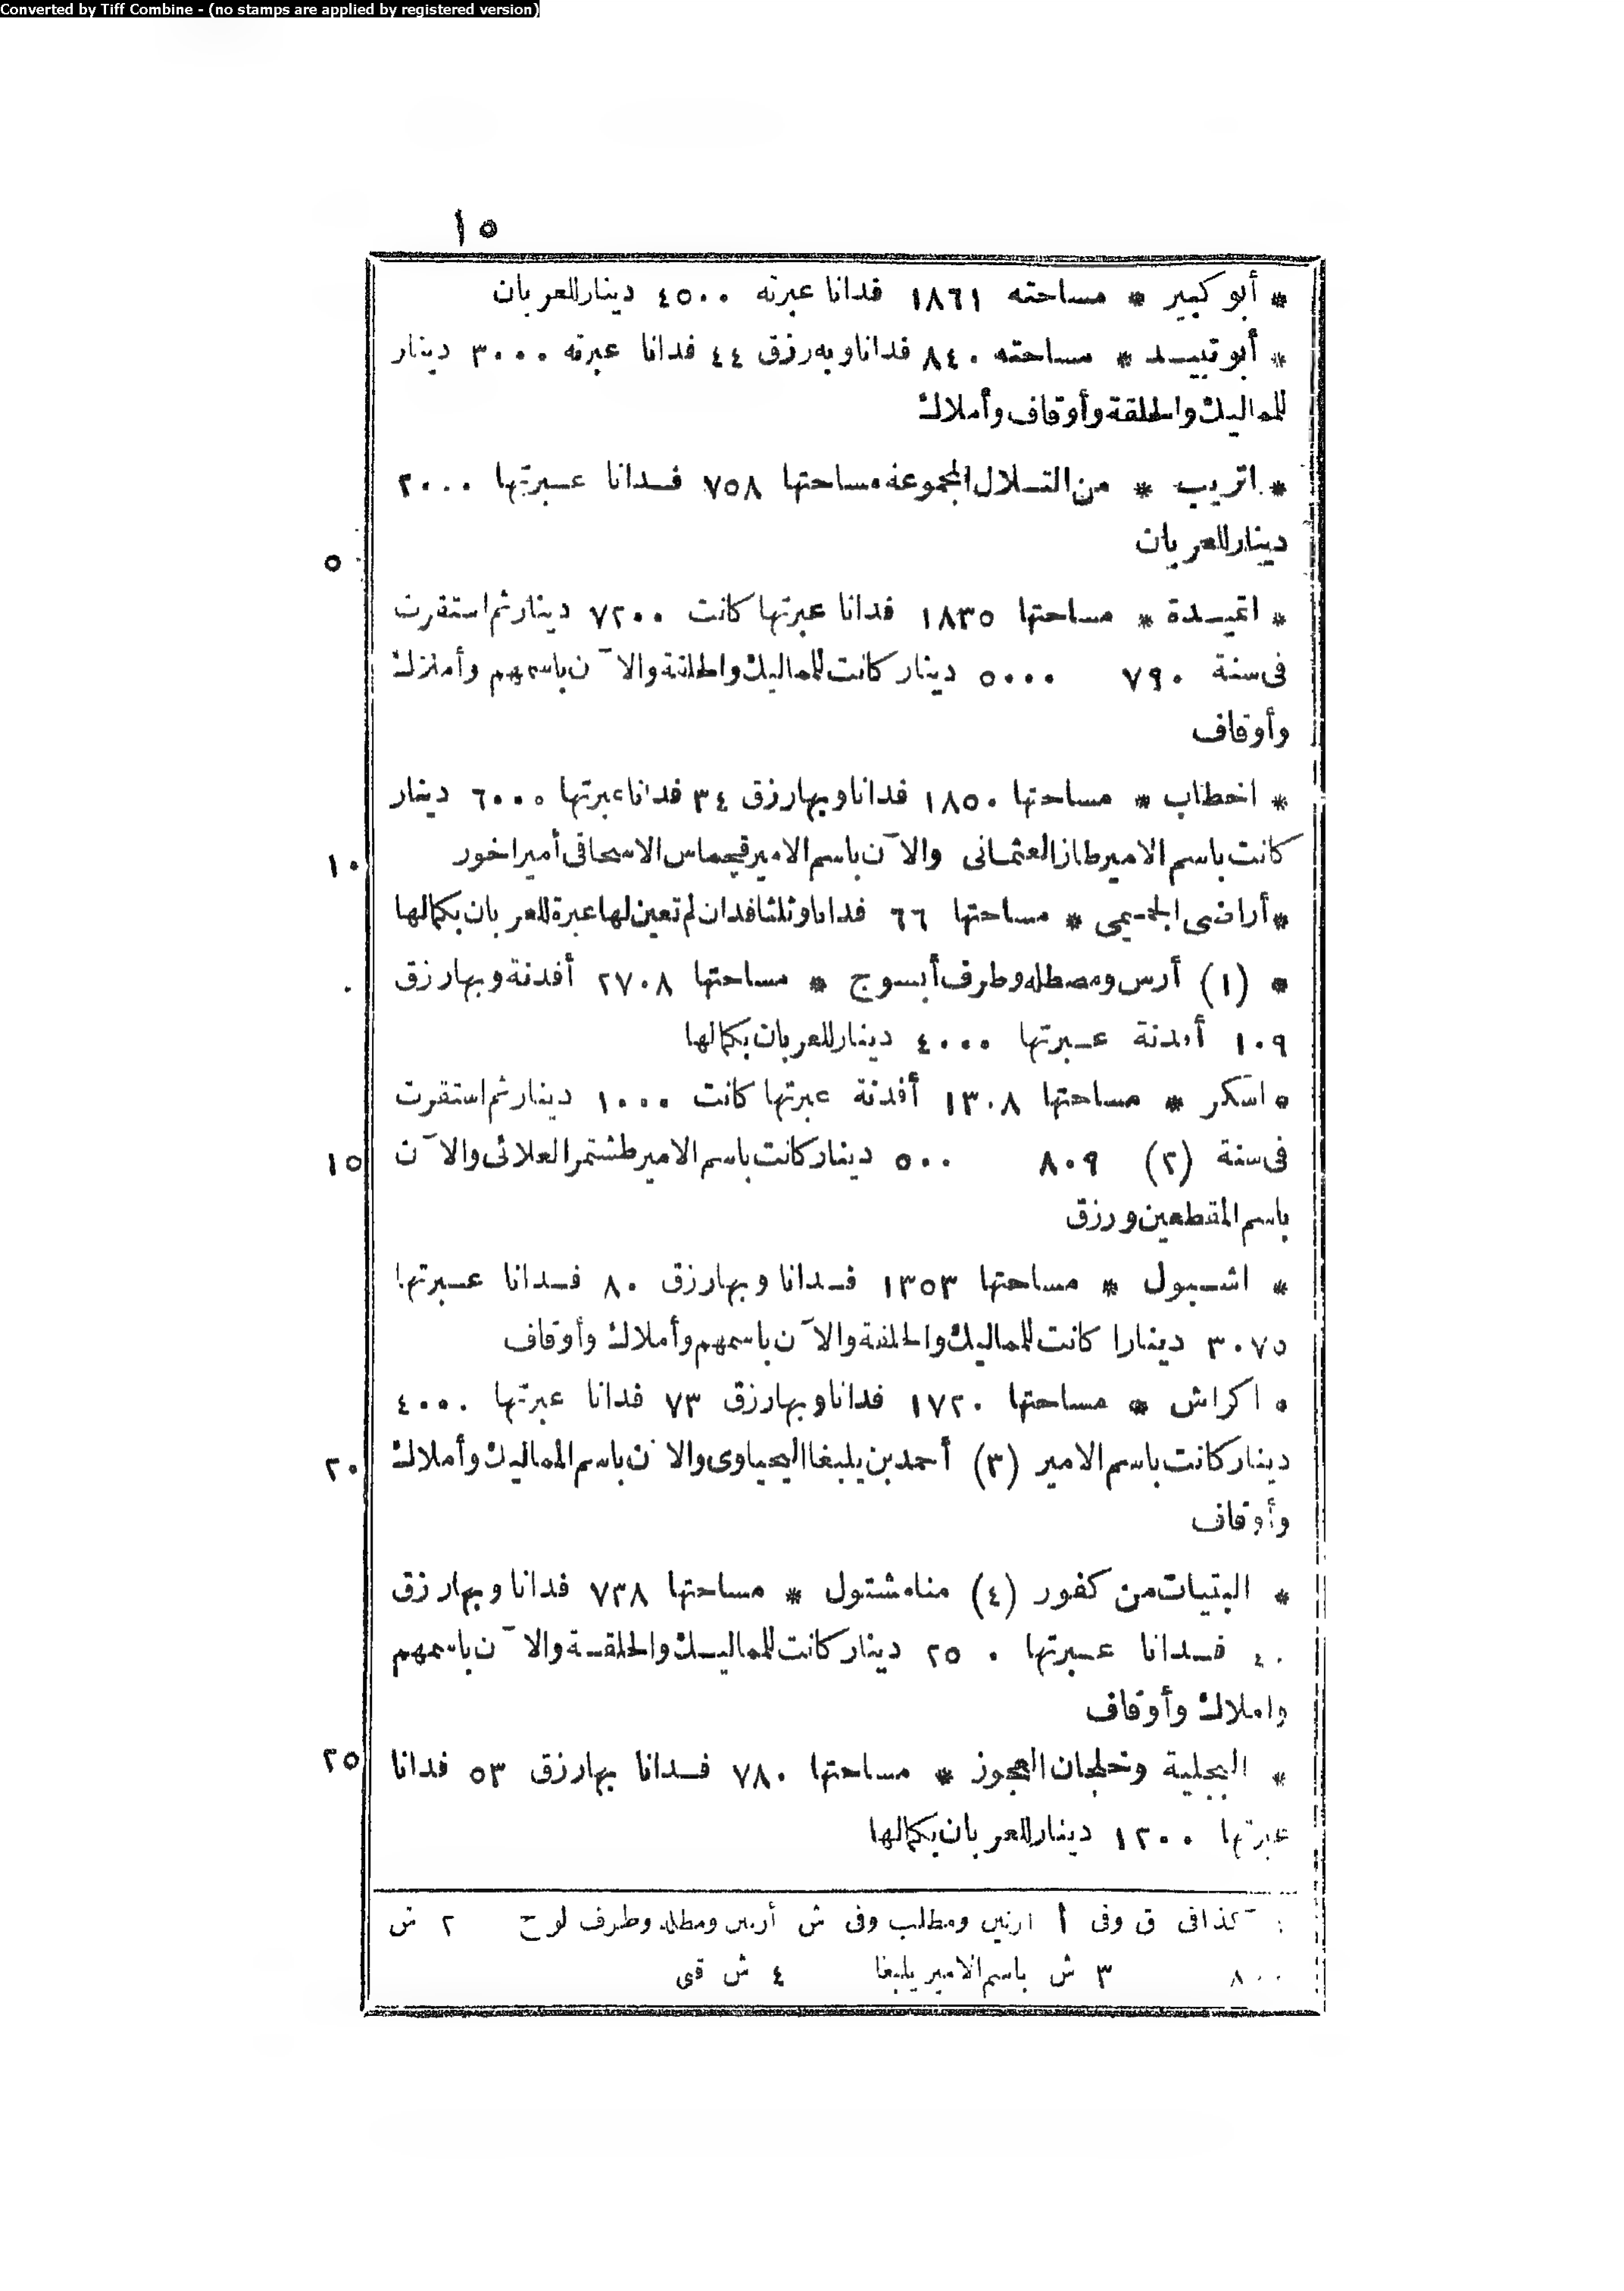 Converted by Tiff Combine - (no stamps are applied by registered version)
١٥
* أبو كبير * مساحته ١٨٦١ فدانا عبرته ٤٥٠٠ دينار للعربان
* أبو تييد * مساحته ٨٤٠ فدانا وبه رزق ٤٤ فدانا عبرته ٣٠٠٠ دينار
للمماليك والحلقة وأوقاف وأملاك
* اتريب * من التلال المجموعة مساحتها ٧٥٨ فدانا عبرتها ٢٠٠٠
دينار للعربان
٥
* اتميدة * مساحتها ١٨٣٥ فدانا عبرتها كانت ٧٢٠٠ دينار ثم استقرت
فى سنة ٧٩٠ ٥٠٠٠ دينار كانت للمماليك والحلقة والآن باسمهم وأملاك
وأوقاف
* اخطاب * مساحتها ١٨٥٠ فدانا وبها رزق ٣٤ فدانا عبرتها ٦٠٠٠ دينار
كانت باسم الامير طاز العثمانى والآن باسم الامير قجماس الاسحاقى أميراخور
١٠
* أراضى الجميمى * مساحتها ٦٦ فدانا وثلثا فدان لم تعين لها عبرة للعربان بكمالها
* (١) أرس ومصطله وطرف أبسوج * مساحتها ٢٧٠٨ أفدنة وبها رزق
١٠٩ أفدنة عبرتها ٤٠٠٠ دينار للعربان بكمالها
* اسكر * مساحتها ١٣٠٨ أفدنة عبرتها كانت ١٠٠٠ دينار ثم استقرت
فى سنة (٢) ٨٠٩ ٥٠٠ دينار كانت باسم الامير طشتمر العلائى والآن
١٥
باسم المقطعين ورزق
* اشبول * مساحتها ١٣٥٣ فدانا وبها رزق ٨٠ فدانا عبرتها
٣٠٧٥ دينارا كانت للمماليك والحلقة والآن باسمهم وأملاك وأوقاف
* اكراش * مساحتها ١٧٢٠ فدانا وبها رزق ٧٣ فدانا عبرتها ٤٠٠٠
دينار كانت باسم الامير (٣) أحمد بن يلبغا اليحياوى والآن باسم المماليك وأملاك
٢٠
وأوقاف
* البتيات من كفور (٤) مناه شتول * مساحتها ٧٣٨ فدانا وبها رزق
٤٠ فدانا عبرتها ٢٥٠ دينار كانت للمماليك والحلقة والآن باسمهم
واملاك وأوقاف
* البجلية وخلجان العجوز * مساحتها ٧٨٠ فدانا بها رزق ٥٣ فدانا
٢٥
عبرتها ١٢٠٠ دينار للعربان بكمالها
كذا فى ق وفى أ ارنين ومطلب وفى ش أرس ومطله وطرف لوح ٢ ش
٨٠٠ ٣ ش باسم الامير يلبغا ٤ ش قى